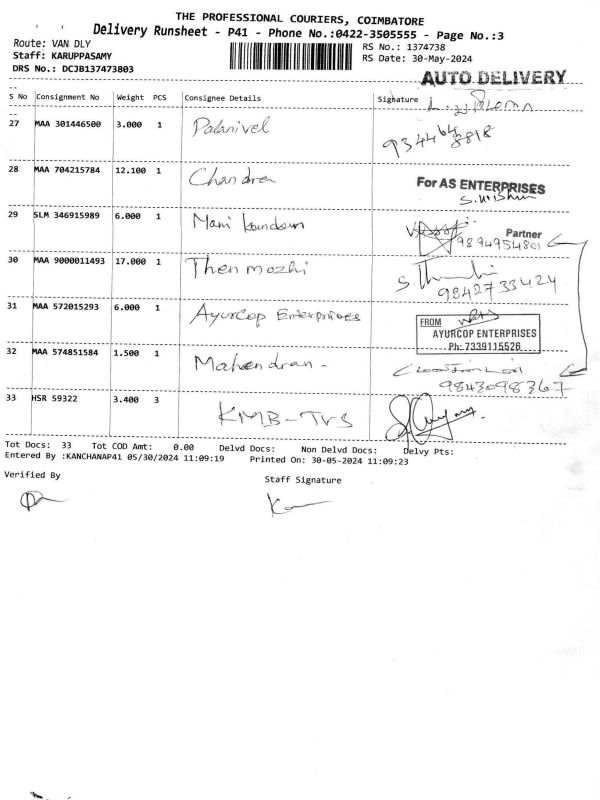 THE PROFESSIONAL COURIERS, COIMBATORE
Delivery Runsheet - P41 - Phone No.:0422-3505555 - Page No.:3
Route: VAN DLY
RS No.: 1374738
Staff: KARUPPASAMY
RS Date: 30-May-2024
DRS No.: DCJB137473803
AUTO DELIVERY
S No Consignment No Weight PCS Consignee Details Signature
27 MAA 301446500 3.000 1 Palanivel
9344648818
28 MAA 704215784 12.100 1 Chandra
For AS ENTERPRISES
29 SLM 346915989 6.000 1 Mani
Partner
9894954801
30 MAA 9000011493 17.000 1 Then mozhi
9842733424
31 MAA 572015293 6.000 1 AyurCop Enterprises
FROM
AYURCOP ENTERPRISES
Ph: 7339115526
32 MAA 574851584 1.500 1 Mahendran.
9843098367
33 HSR 59322 3.400 3 KMB-TVS
Tot Docs: 33 Tot COD Amt: 0.00 Delvd Docs: Non Delvd Docs: Delvy Pts:
Entered By :KANCHANAP41 05/30/2024 11:09:19 Printed On: 30-05-2024 11:09:23
Verified By
Staff Signature